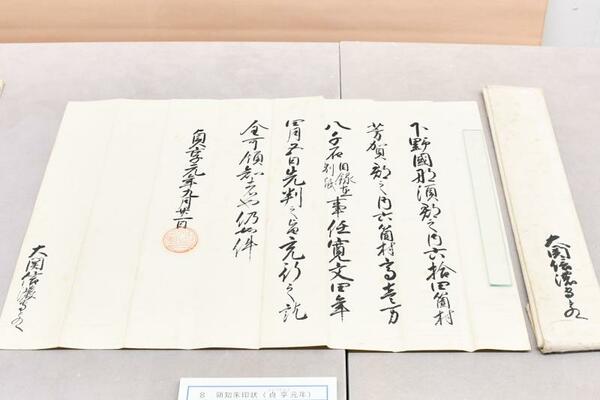 下野國那須郡之内六拾四箇村
芳賀郡之内六箇村高壱万
八千石目録在別紙事任寛文四年
四月五日先判之旨充行之訖
全可領知者也仍如件
貞享元年九月廿一日
大関信濃守とのへ
大関信濃守とのへ
8 領知朱印状(貞享元年)